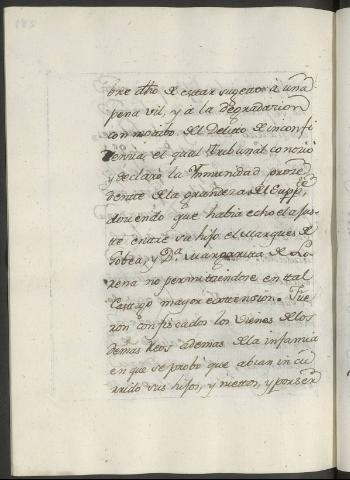 bre dho de estar sugeto à una
pena vil, y à la degradacion
con motibo del Delito de inconfi
dencia, el qual Tribunal conocio
y declarò la Inmunidad proce
dente de la grandeza del Supp.te
diciendo que habia echo el ajus-
te entre su hijo el Marques de
Gobea, y D.a Margarita de Lo-
rena no permitiendose en tal
Castigo mayor extension. Fue
ron confiscados los vienes de los
demas Reos ademas de la infamia
en que se probò que abian incu
rrido sus hijos, y nietos, y por ser